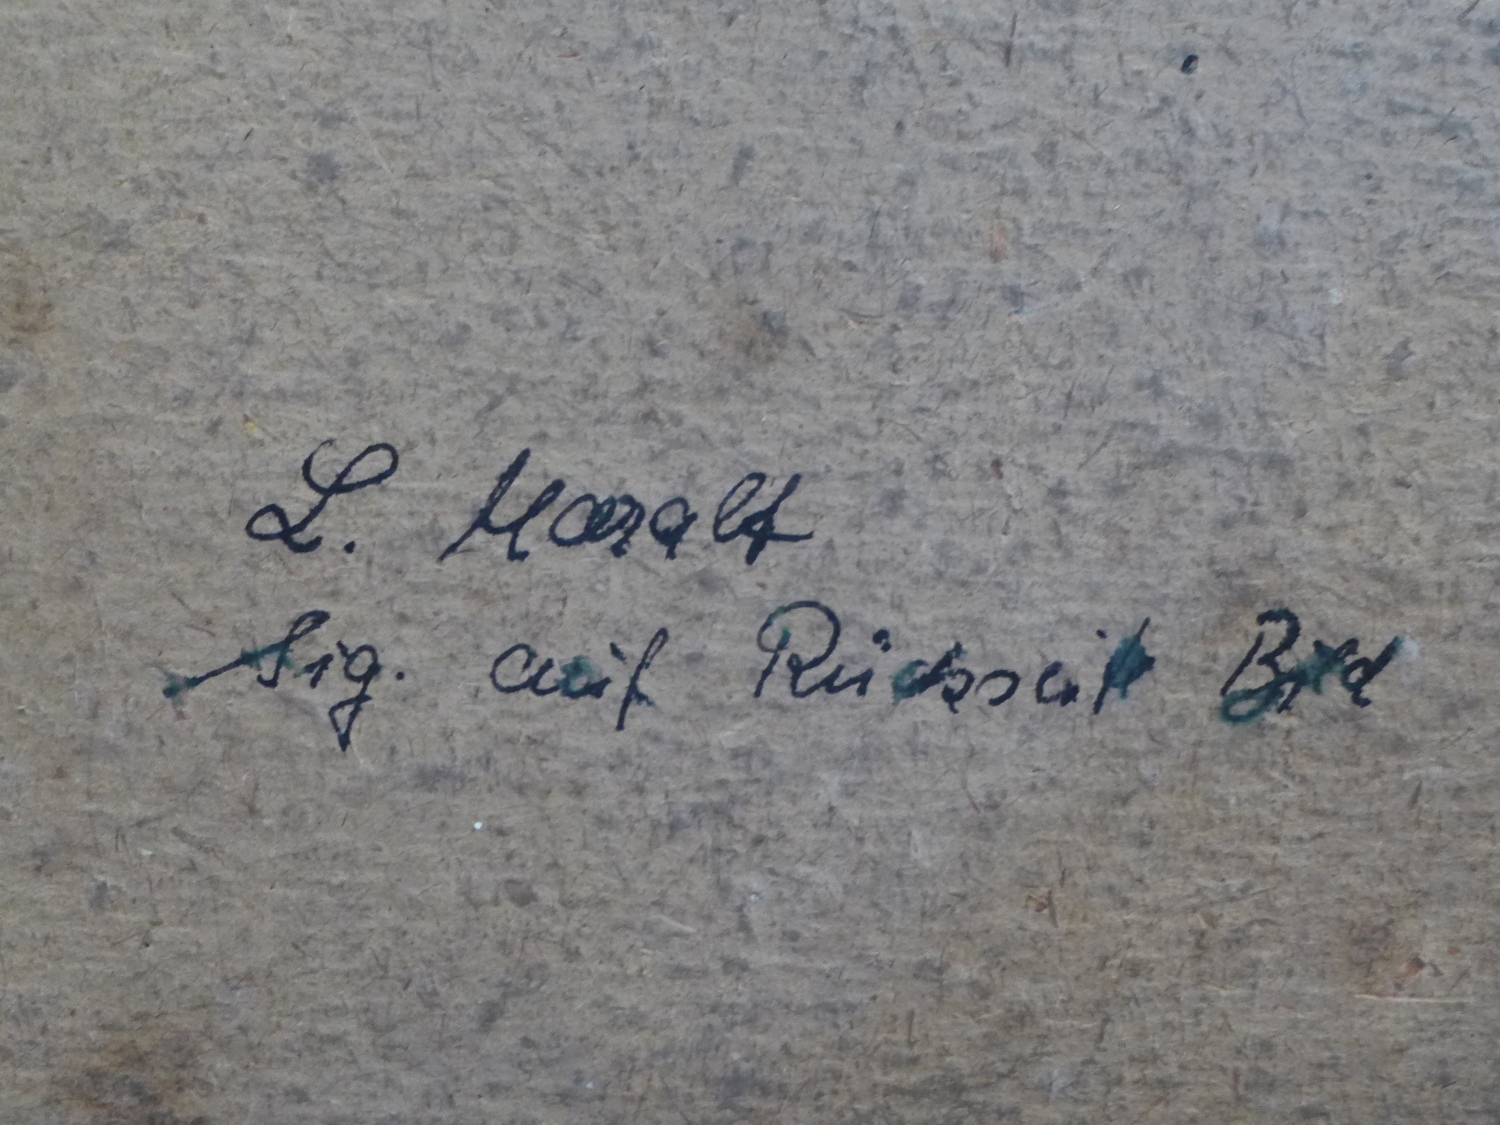 L. Moralt
Sig. auf Rückseit Bild